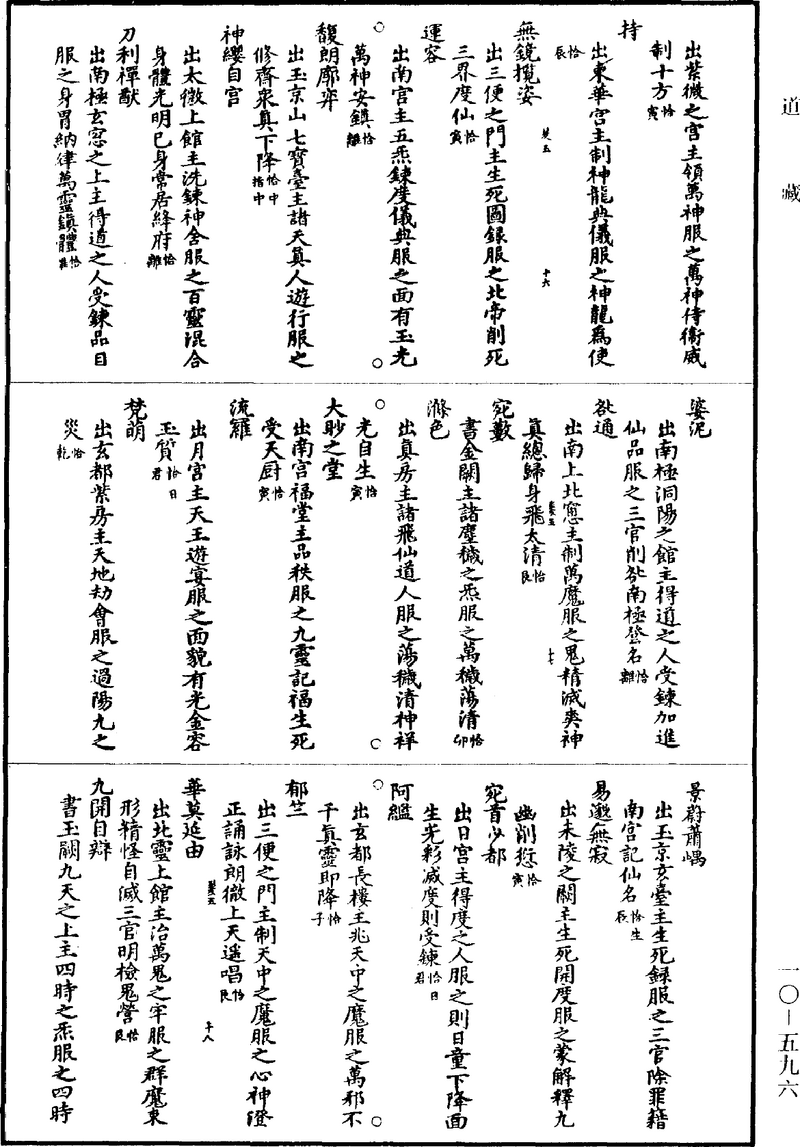 道藏
出紫微之宮主領萬神服之萬神侍衛威
制十方恰寅
持
出東華宮主制神龍典儀服之神龍爲使
恰辰
無鏡攬姿
出三便之門主生死圖録服之北帝削死
三界度仙恰寅
運容
出南宮主五炁鍊度儀典服之面有玉光
萬神安鎮恰離
馥朗廓奕
出玉京山七寶臺主諸天真人遊行服之
修齋衆真下降恰中指中
神纓自宮
出太微上館主洗鍊神舍服之百靈混合
身體光明已身常居絳府恰離
刀利禪猷
出南極玄窓之上主得道之人受鍊品目
服之身胃納律萬靈鎮體
婆泥
出南極洞陽之館主得道之人受鍊加進
仙品服之三官削咎南極登名恰離
咎通
出南上北窓主制萬魔服之鬼精滅爽神
真總歸身飛太清恰艮
宛藪
書金闕主諸塵穢之炁服之萬穢蕩清恰卯
滌色
出真房主諸飛仙道人服之蕩穢清神祥
光自生恰寅
大眇之堂
出南宮福堂主品秩服之九靈記福生死
受天厨恰寅
流羅
出月宮主天王遊宴服之面貌有光金容
玉質恰日君
梵萌
出玄都紫房主天地劫會服之過陽九之
災恰乾
景蔚蕭嵎
出玉京玄臺主生死録服之三官除罪籍
南宮記仙名恰生辰
易邈無寂
出朱陵之闕主生死開度服之蒙解釋九
幽削愆恰寅
宛首少都
出日宮主得度之人服之則日童下降面
生光彩滅度則受鍊恰日君
阿鑑
出玄都長樓主兆天中之魔服之萬邪不
干真靈即降恰子
郁竺
出三便之門主制天中之魔服之心神澄
正誦詠朗徹上天遥唱恰艮
華莫延由
出北靈上館主治萬鬼之牢服之群魔束
形精怪自滅三官明檢鬼營恰艮
九開自辯
書玉闕九天之上主四時之炁服之四時
一〇—五九六